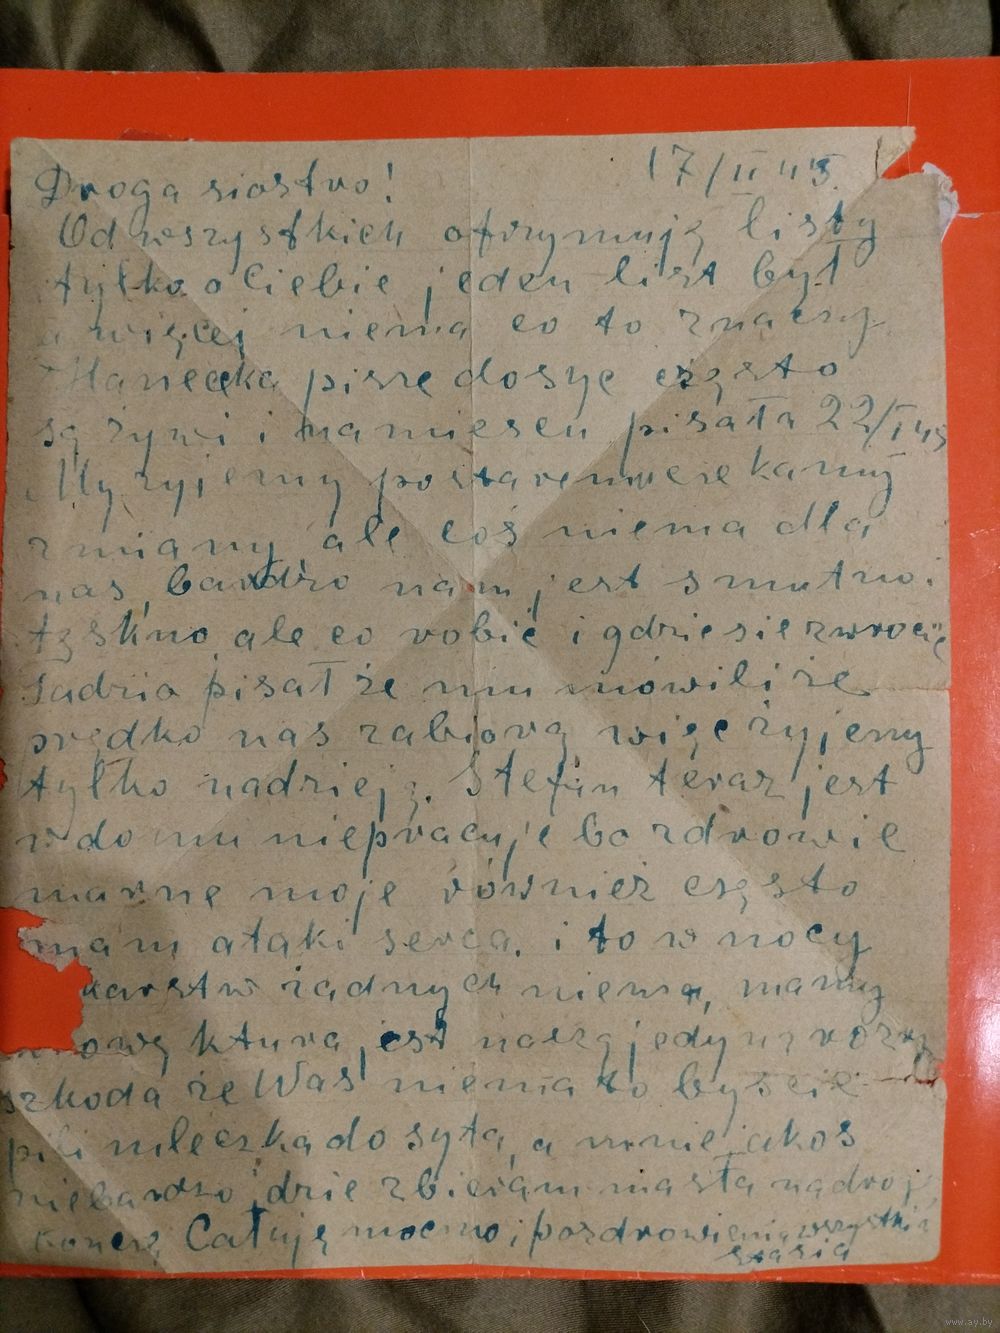 17/II 45.
Droga siostro!
Od wszystkich otrzymuję listy
tylko o Ciebie jeden list był
a więcej niema co to znaczy
Haneczka pisze dosyc często
są żywi i na miescu pisała 22/I 45
My żyjemy postaremu czekamy
zmiany ale coś niema dla
nas, bardzo nam jest smutno i
tęskno, ale co robić i gdzie sie zwrocić
Tadzio pisał że mu mówili że
prędko nas zabiorą więc żyjemy
tylko nadzieją. Stefan teraz jest
w domu niepracuje bo zdrowie
marne moje również często
mam ataki serca, i to w nocy
karstw żadnych niema, mamy
ową ktura jest naszą jedyną
szkoda że Was niema to byscie
pili mleczka do syta, a u mnie jakos
niebardzo idzie zbieram masła
koncze Całuję mocno i pozdrowienia wszystkim
Stasia
www.ay.by